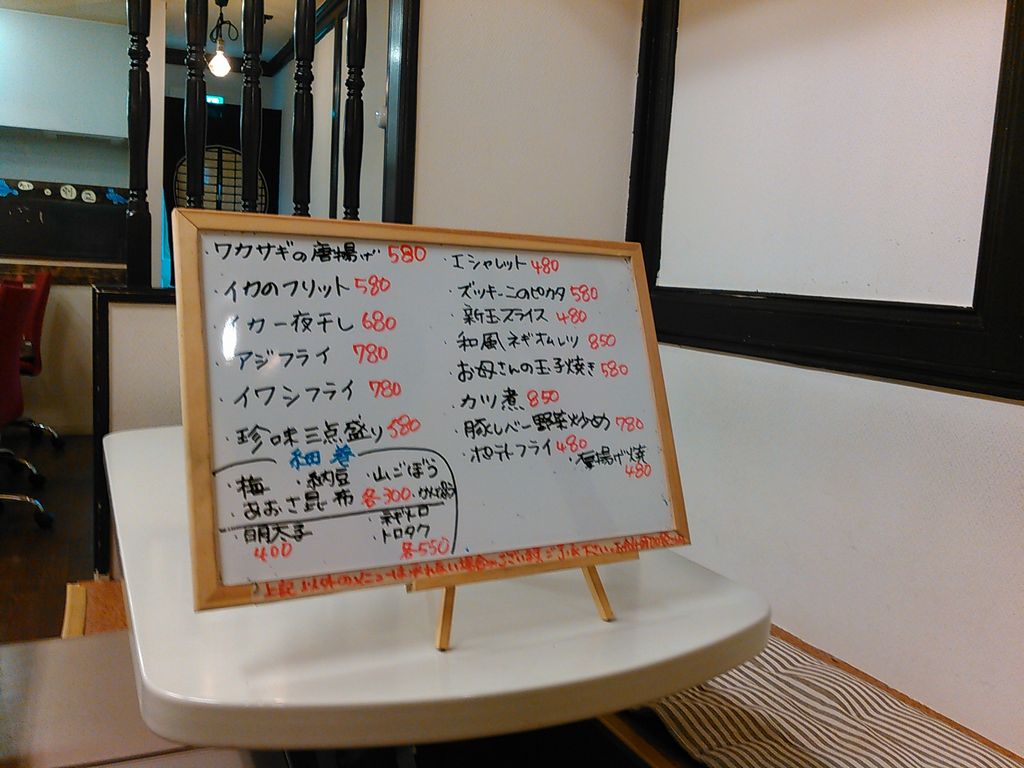 ・ワカサギの唐揚げ 580
・イカのフリット 580
・イカ一夜干し 680
・アジフライ 780
・イワシフライ 780
・珍味三点盛り 580
細巻
・梅 ・納豆 ・山ごぼう
・あおさ昆布 各300
・明太子 400
・ネギトロ
・トロタク
各550
・エシャレット 480
・ズッキーニのピカタ 580
・新玉スライス 480
・和風ネギオムレツ 850
・お母さんの玉子焼き 580
・カツ煮 850
・豚レバー野菜炒め 780
・ポテトフライ 480
・厚揚げ焼 480
上記以外のメニューは
場合がございます。ご了承下さい。